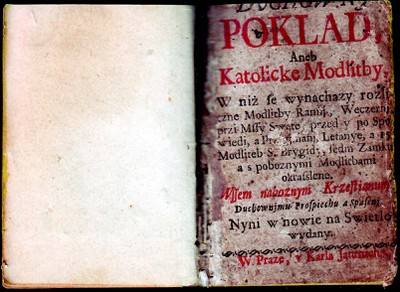 Duchownj
POKLAD,
Aneb
Katolicke Modlitby,
W niž se wynachazy rozli-
czne Modlitby Rannj, Weczernj,
przi Mssy Swate, przed y po Spo-
wiedi, a Letanye, a 15.
Modliteb S. Brygidy, sedm Zamku
a s poboznymi Modlitbami
okrasslene.
Wssem naboznym Krzestianum
Duchownjmu Prospiechu a Spasenj
Nynj w nowie na Swietlo
wydany.
W Praze, v Karla